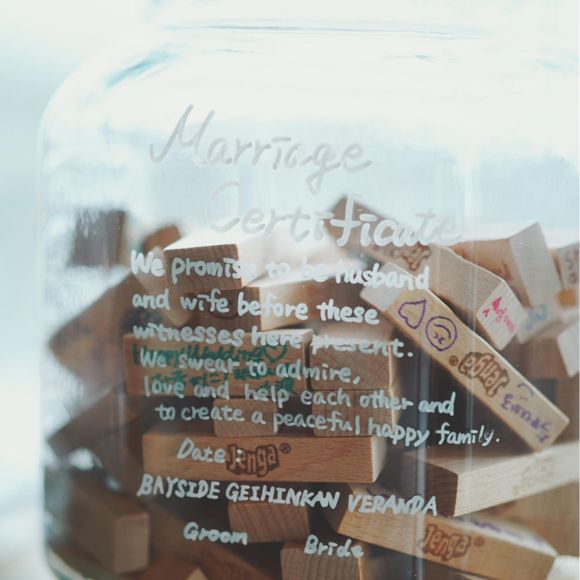 Marriage
Certificate
We promise to be husband
and wife before these
witnesses here present.
We swear to admire,
love and help each other and
to create a peaceful happy family.
Date:
BAYSIDE GEIHINKAN VERANDA
Groom Bride
Jenga®
Jenga®
Jenga®